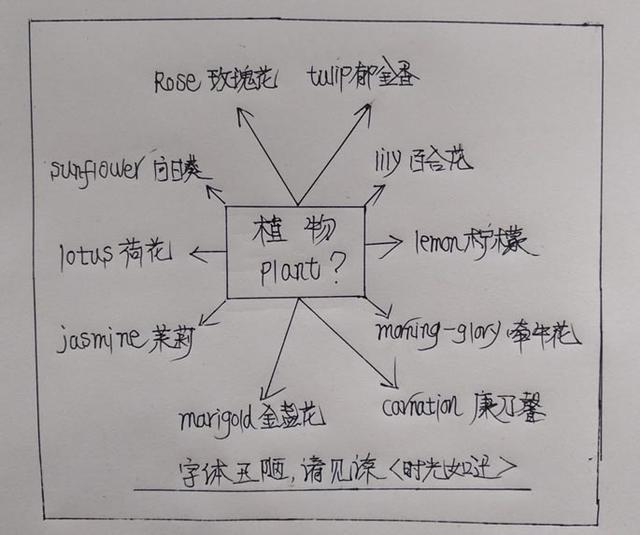 Rose 玫瑰花 tulip 郁金香
sunflower 向日葵 lily 百合花
植物
plant?
lotus 荷花 lemon 柠檬
jasmine 茉莉 morning-glory 牵牛花
marigold 金盏花 carnation 康乃馨
字体丑陋,请见谅<时光如迅>